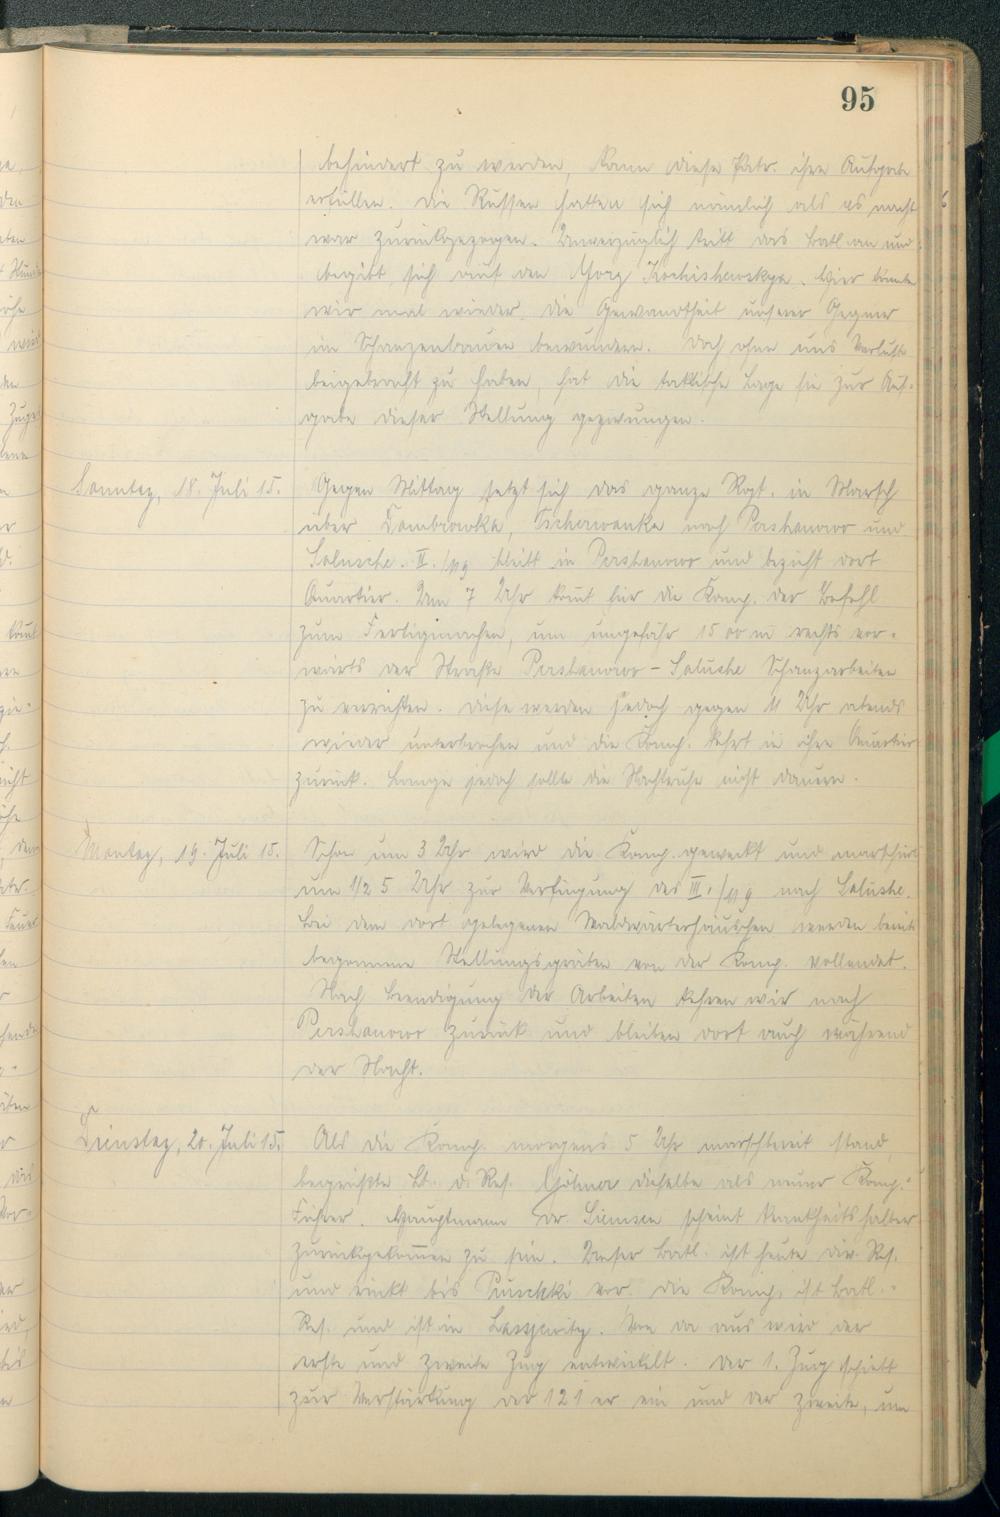 95
behindert zu werden, kann diese Patr. ihre Aufgabe
erfüllen. Die Russen hatten sich nämlich als es nacht
war zurückgezogen. Unverzüglich tritt das Batl. an und
begibt sich auf den Morg Kochishewskya. Hier konnte
wir mal wieder die Gewandtheit unserer Gegner
im Schanzenbauen bewundern. Doch ohne uns Verluste
beigebracht zu haben, hat die taktische Lage sie zur Auf-
gabe dieser Stellung gezwungen.
Sonntag, 18. Juli 15.
Gegen Mittag setzt sich das ganze Rgt. in Marsch
über Dombrowka, Tscherwonka nach Perstanowo und
Salusche. II./119 bleibt in Perstanowo und bezieht dort
Quartier. Um 7 Uhr kom̅t für die Komp. der Befehl
zum Fertigmachen, um ungefähr 1500 m rechts vor-
wärts der Straße Perstanowo - Salushe Schanzarbeiten
zu verrichten. Diese werden jedoch gegen 11 Uhr abends
wieder unterbrochen und die Komp. kehrt in ihre Quartier
zurück. Lange jedoch sollte die Nachtruhe nicht dauern.
Montag, 19. Juli 15.
Schon um 3 Uhr wird die Komp. geweckt und marschiert
um 1/2 5 Uhr zur Verfügung des III./119 nach Salushe.
Bei dem dort gelegenen Waldwärterhäuschen werden bereits
begonnene Stellungsgräben von der Komp. vollendet.
Nach Beendigung der Arbeiten kehren wir nach
Perstanowo zurück und bleiben dort auch während
der Nacht.
Dienstag, 20. Juli 15.
Als die Komp. morgens 5 Uhr marschbereit stand,
begrüßte Lt. d. Res. dieselbe als neuer Komp.-
Führer. Hauptmann Dr. Siemsen scheint krankheitshalber
zurückgekom̅en zu sein. Unser Batl. ist heute Div. Res.
und rückt bis Puschki vor. Die Komp. ist Batl.-
Res. und ist in. Von da aus wird der
erste und zweite Zug entwickelt. Der 1. Zug schiebt
zur Verstärkung der 121er ein und der zweite, um